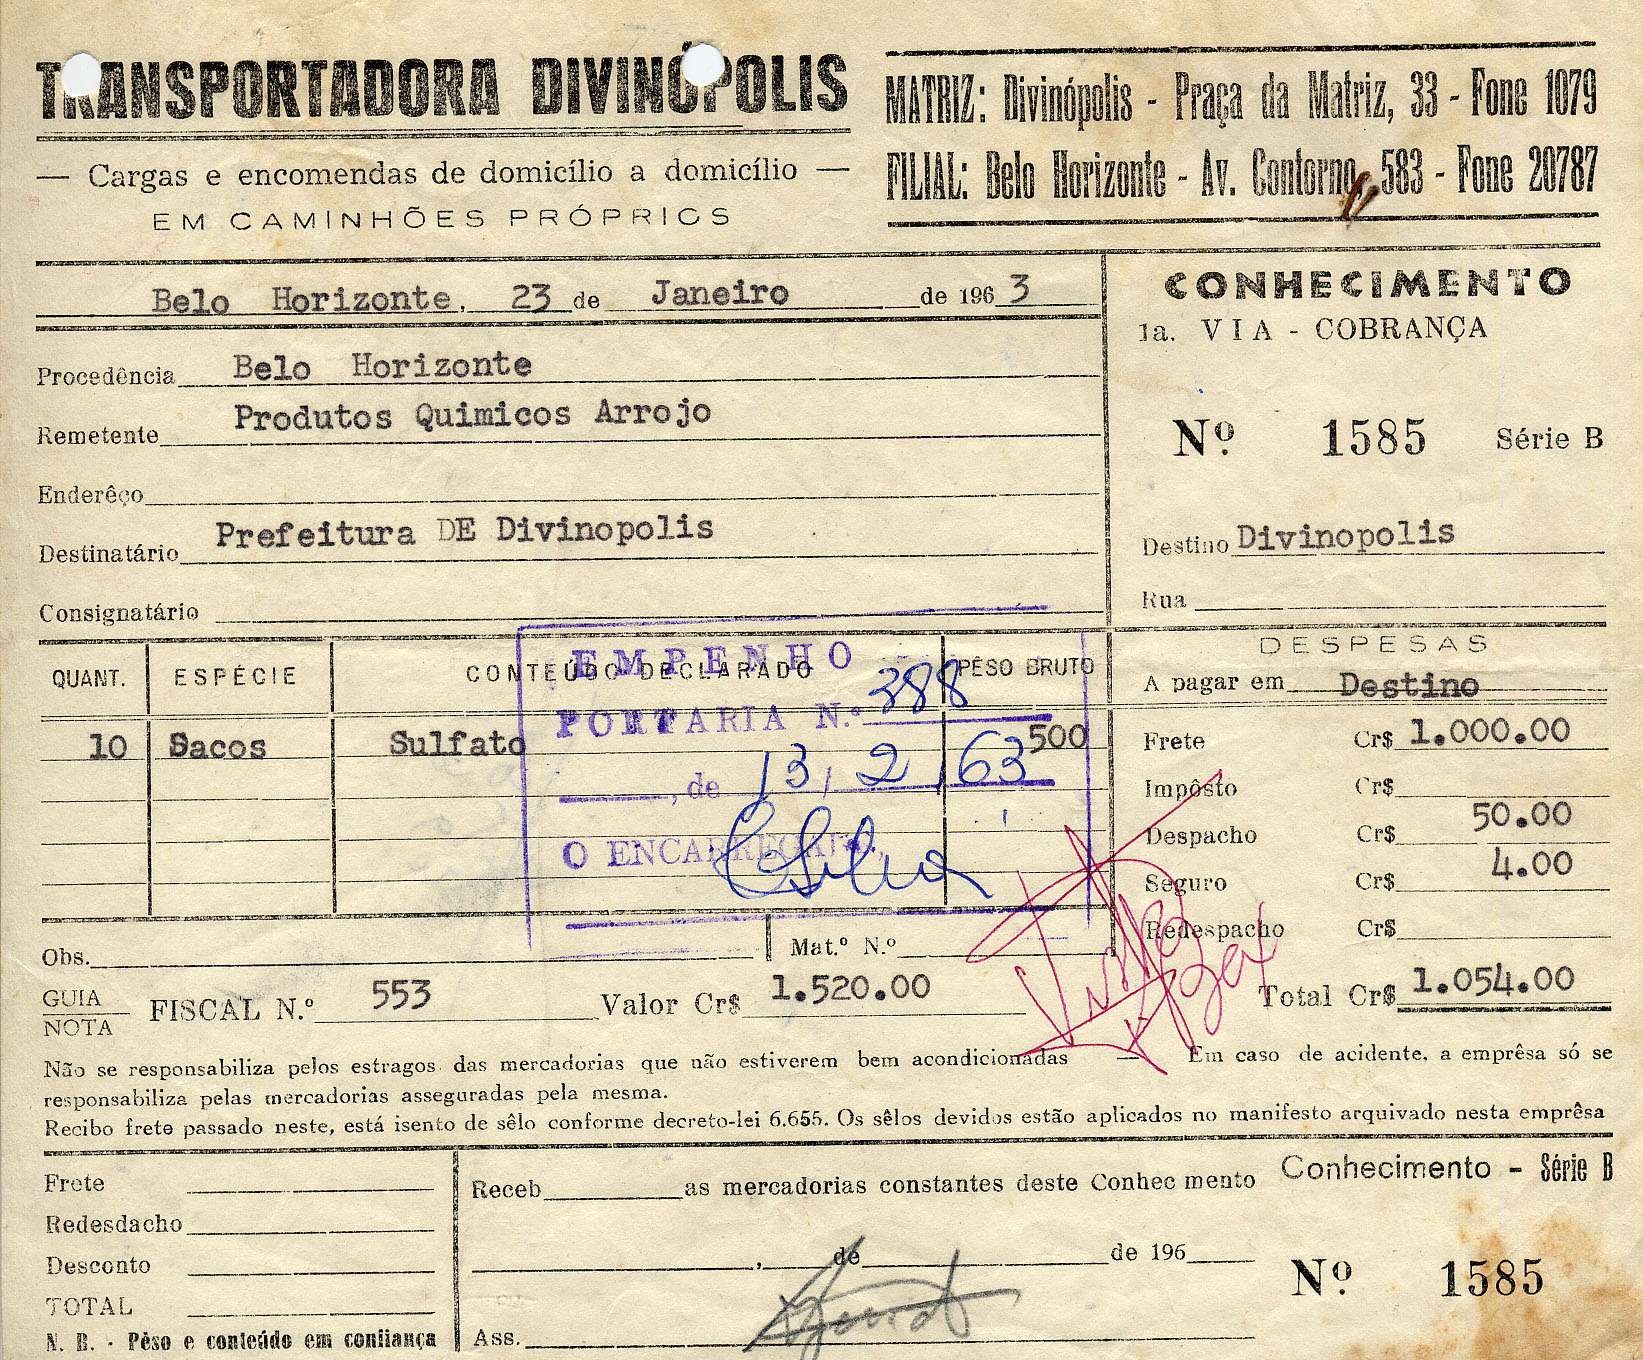 TRANSPORTADORA DIVINÓPOLIS
— Cargas e encomendas de domicílio a domicílio —
EM CAMINHÕES PRÓPRIOS
MATRIZ: Divinópolis - Praça da Matriz, 33 - Fone 1079
FILIAL: Belo Horizonte - Av. Contorno, 583 - Fone 20787
Belo Horizonte, 23 de Janeiro de 1963
CONHECIMENTO
1a. VIA - COBRANÇA
Nº 1585 Série B
Procedência Belo Horizonte
Remetente Produtos Quimicos Arrojo
Enderêço
Destinatário Prefeitura DE Divinopolis
Consignatário
Destino Divinopolis
Rua
QUANT. ESPÉCIE CONTEÚDO DECLARADO PÊSO BRUTO
10 Sacos Sulfato 500
EMPENHO
PORTARIA N.º 388
, de 13, 2, 63
O ENCARREGADO,
CSilva
DESPESAS
A pagar em Destino
Frete Cr$ 1.000.00
Impôsto Cr$
Despacho Cr$ 50.00
Seguro Cr$ 4.00
Redespacho Cr$
Total Cr$ 1.054.00
Obs. Mat.º N.º
GUIA
NOTA
FISCAL N.º 553 Valor Cr$ 1.520.00
Não se responsabiliza pelos estragos das mercadorias que não estiverem bem acondicionadas — Em caso de acidente, a emprêsa só se
responsabiliza pelas mercadorias asseguradas pela mesma.
Recibo frete passado neste, está isento de sêlo conforme decreto-lei 6.655. Os sêlos devidos estão aplicados no manifesto arquivado nesta emprêsa
Frete
Redesdacho
Desconto
TOTAL
N. B. - Pêso e conteúdo em confiança
Receb as mercadorias constantes deste Conhec mento
, de de 196
Ass.
Conhecimento - Série B
Nº 1585